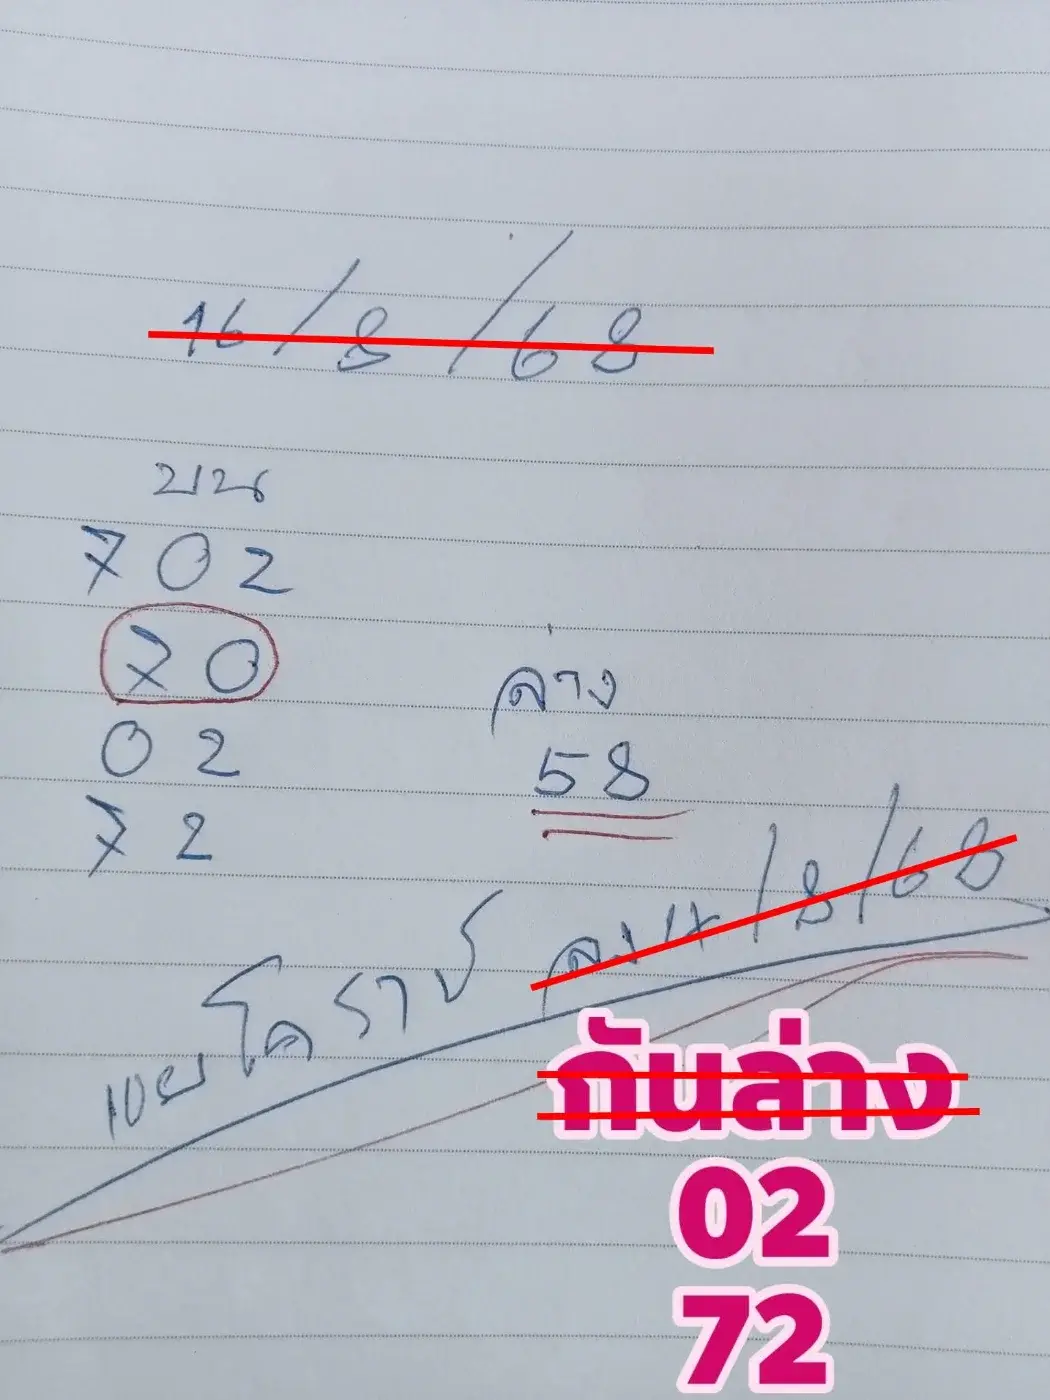 16/8/68
บน
702
70
02
72
ล่าง
58
เผยโคราช ลง 17/8/68
กันล่าง
02
72